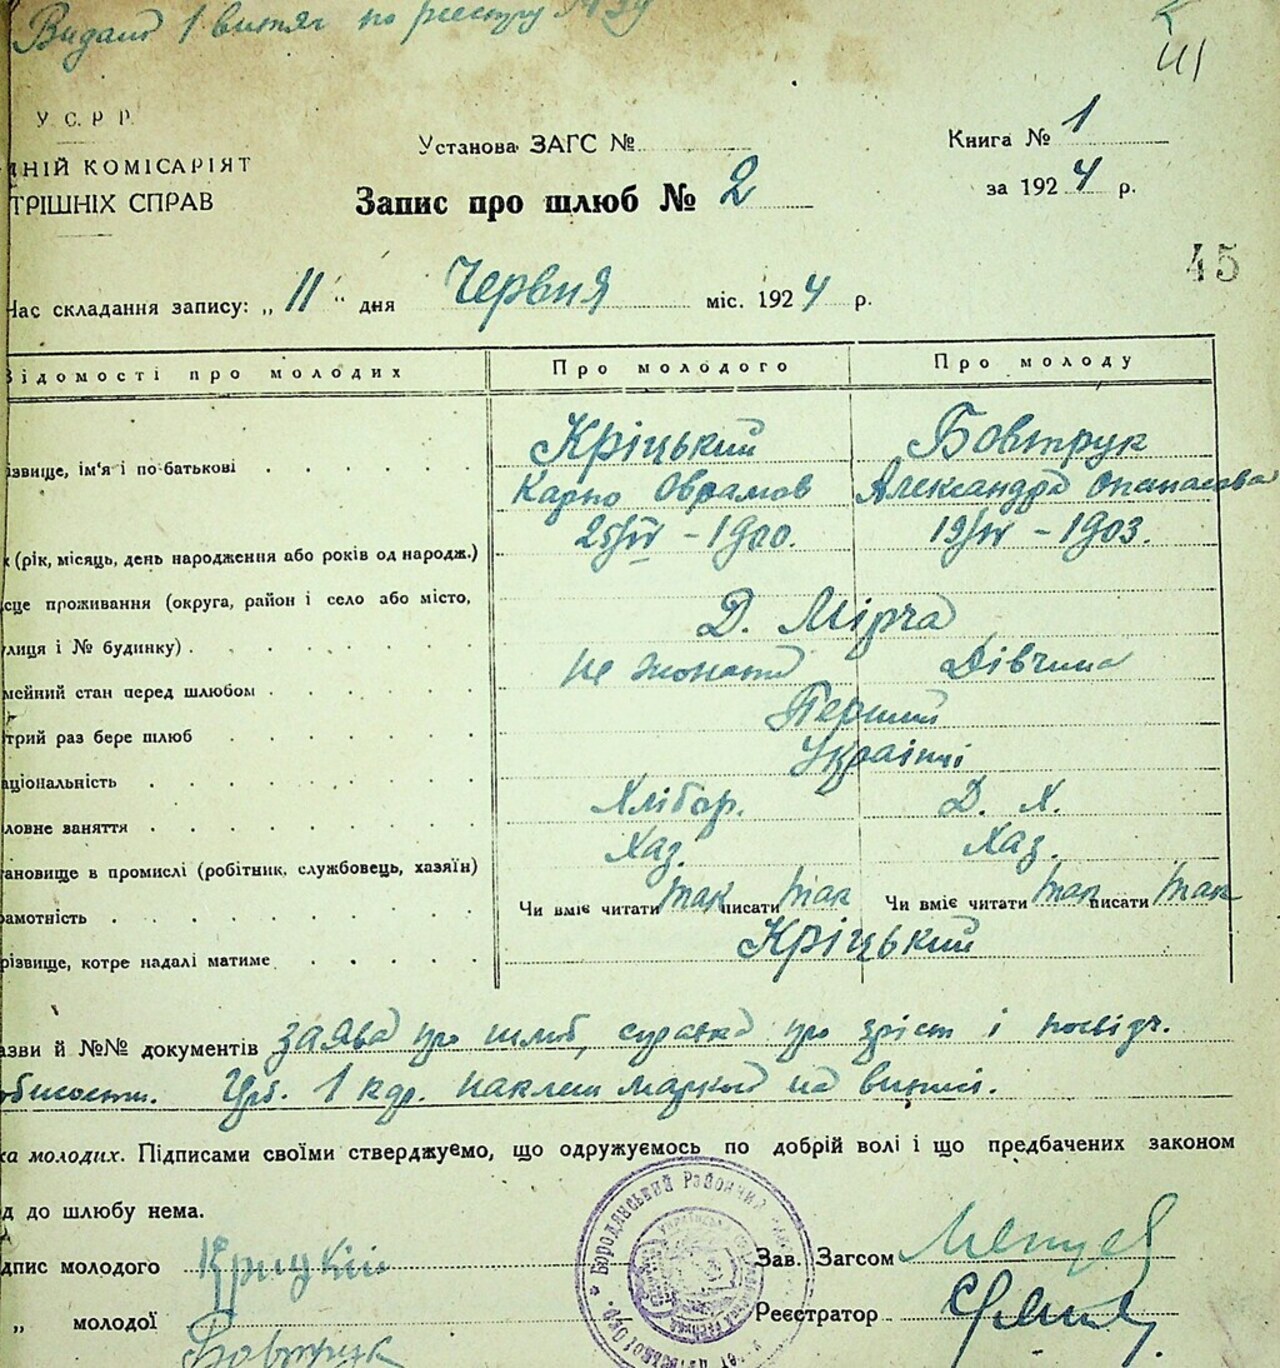 Видано 1 витяг по реєстру №
41
У. С. Р. Р.
ДНІЙ КОМІСАРІЯТ
ТРІШНІХ СПРАВ
Установа ЗАГС №
Запис про шлюб № 2
Книга № 1
за 1924 р.
45
Час складання запису: „11“ дня Червня міс. 1924 р.
Відомості про молодих Про молодого Про молоду
Кріцький Бовтрук
ізвище, ім'я і по-батькові
Карпо Оврамов Александра Опанасова
25/IV - 1900. 19/IV - 1903.
к (рік, місяць, день народження або років од народж.)
сце проживання (округа, район і село або місто,
Д. Мірча
лиця і № будинку)
не жонат Дівчина
мейний стан перед шлюбом
Перший
трий раз бере шлюб
Українці
аціональність
Хлібор. Д. Х.
ловне заняття
Хаз. Хаз.
тановище в промислі (робітник, службовець, хазяїн)
рамотність Чи вміє читати так писати так Чи вміє читати так писати так
Кріцький
різвище, котре надалі матиме
азви й №№ документів заява про шлюб, справка про зріст і посвідч.
обисости. 1 кар. наклеш маркой на виписі.
ка молодих. Підписами своїми стверджуємо, що одружуємось по добрій волі і що предбачених законом
д до шлюбу нема.
дпис молодого Крицкий
„ молодої Бовтрук
Зав. Загсом
Реєстратор
Бородянський Районний